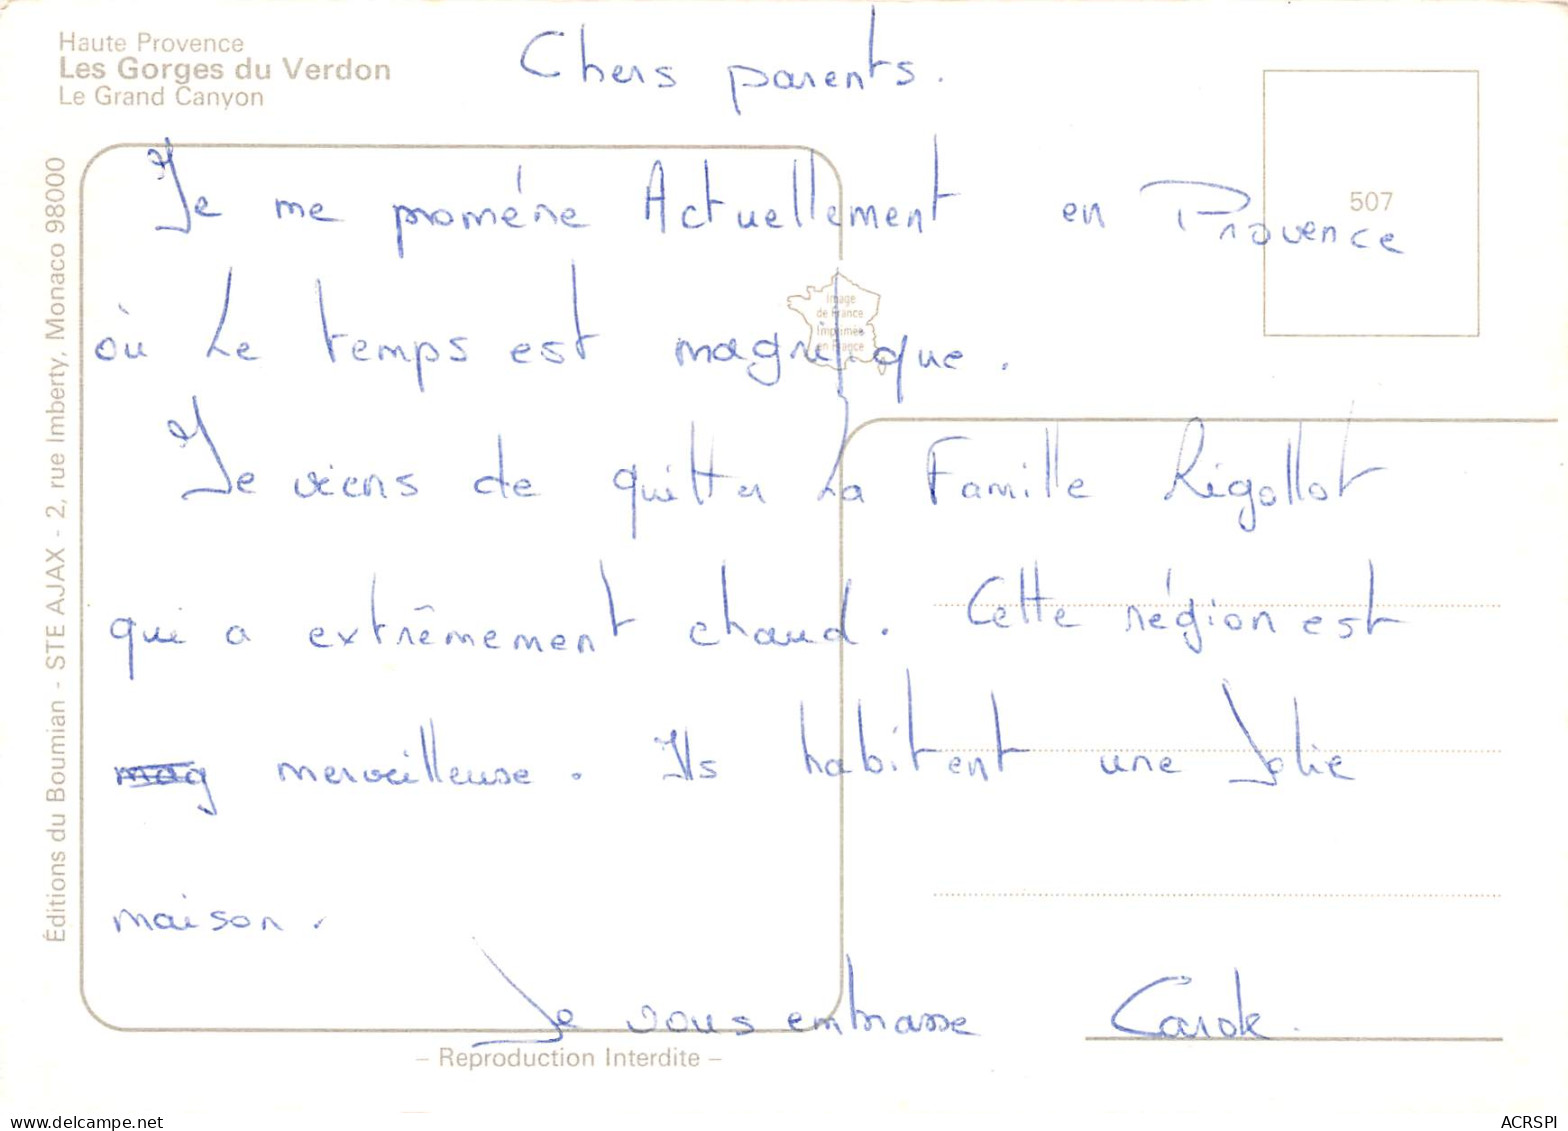 Haute Provence
Les Gorges du Verdon
Le Grand Canyon
Chers parents.
507
Je me promène Actuellement en Provence
où Le temps est magnifique.
Image
de France
Imprimée
en France
Je viens de quitter La Famille Rigollot
qui a extrêmement chaud. Cette région est
mag merveilleuse. Ils habitent une Jolie
maison.
Je vous embrasse Carole.
– Reproduction Interdite –
Éditions du Boumian - STE AJAX - 2, rue Imberty, Monaco 98000
www.delcampe.net
ACRSPI